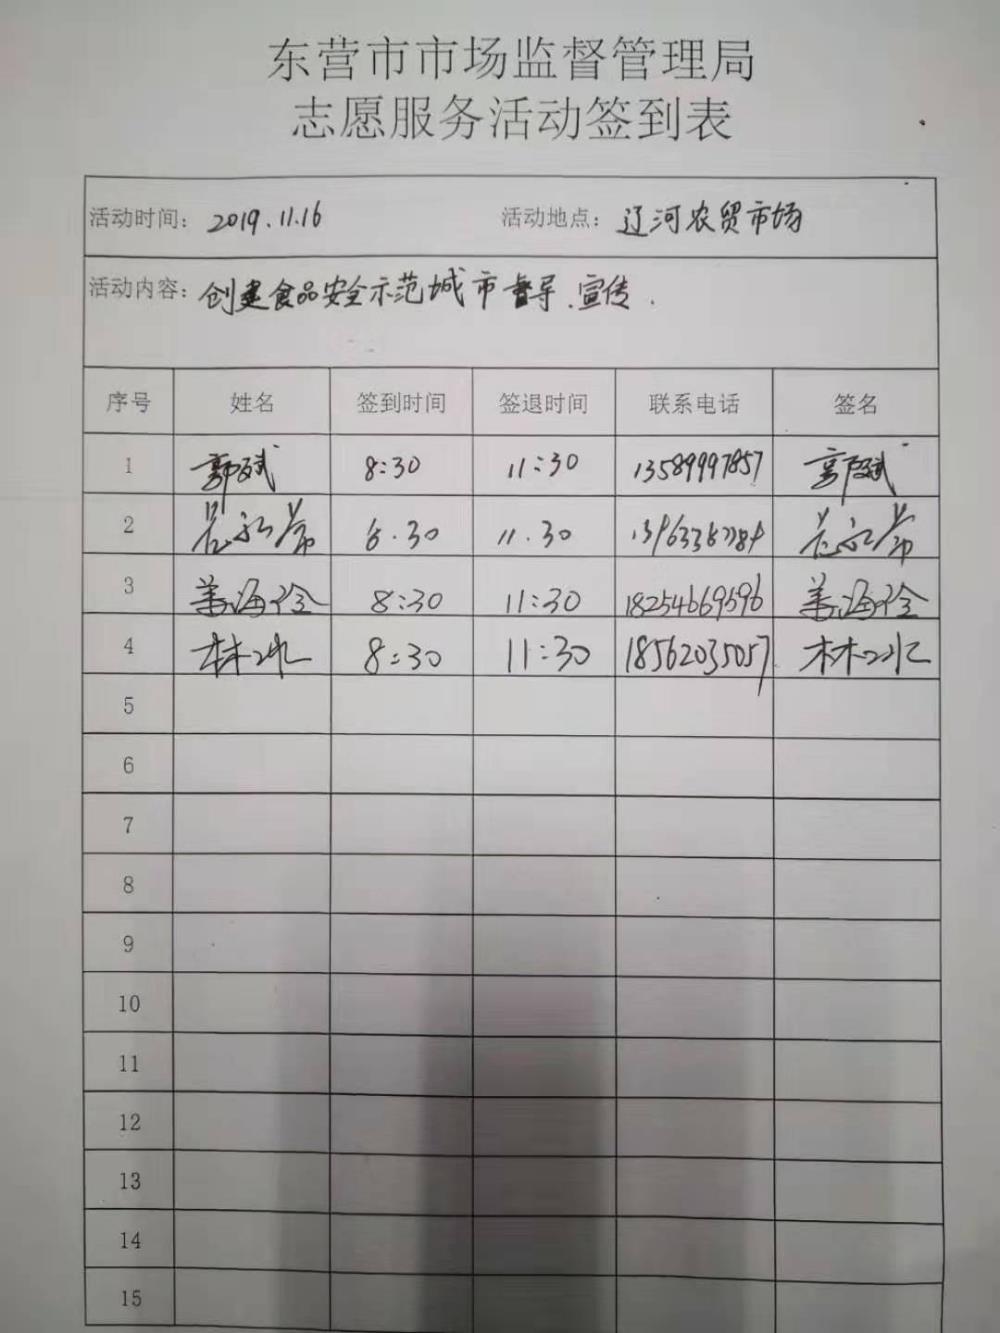 东营市市场监督管理局
志愿服务活动签到表
活动时间: 2019.11.16 活动地点: 辽河农贸市场
活动内容: 创建食品安全示范城市督导、宣传.
序号 姓名 签到时间 签退时间 联系电话 签名
1 郭斌 8:30 11:30 13589997857 郭斌
2 8.30 11.30
3 8:30 11:30 18254669596
4 林冰 8:30 11:30 18562035057 林冰
5
6
7
8
9
10
11
12
13
14
15